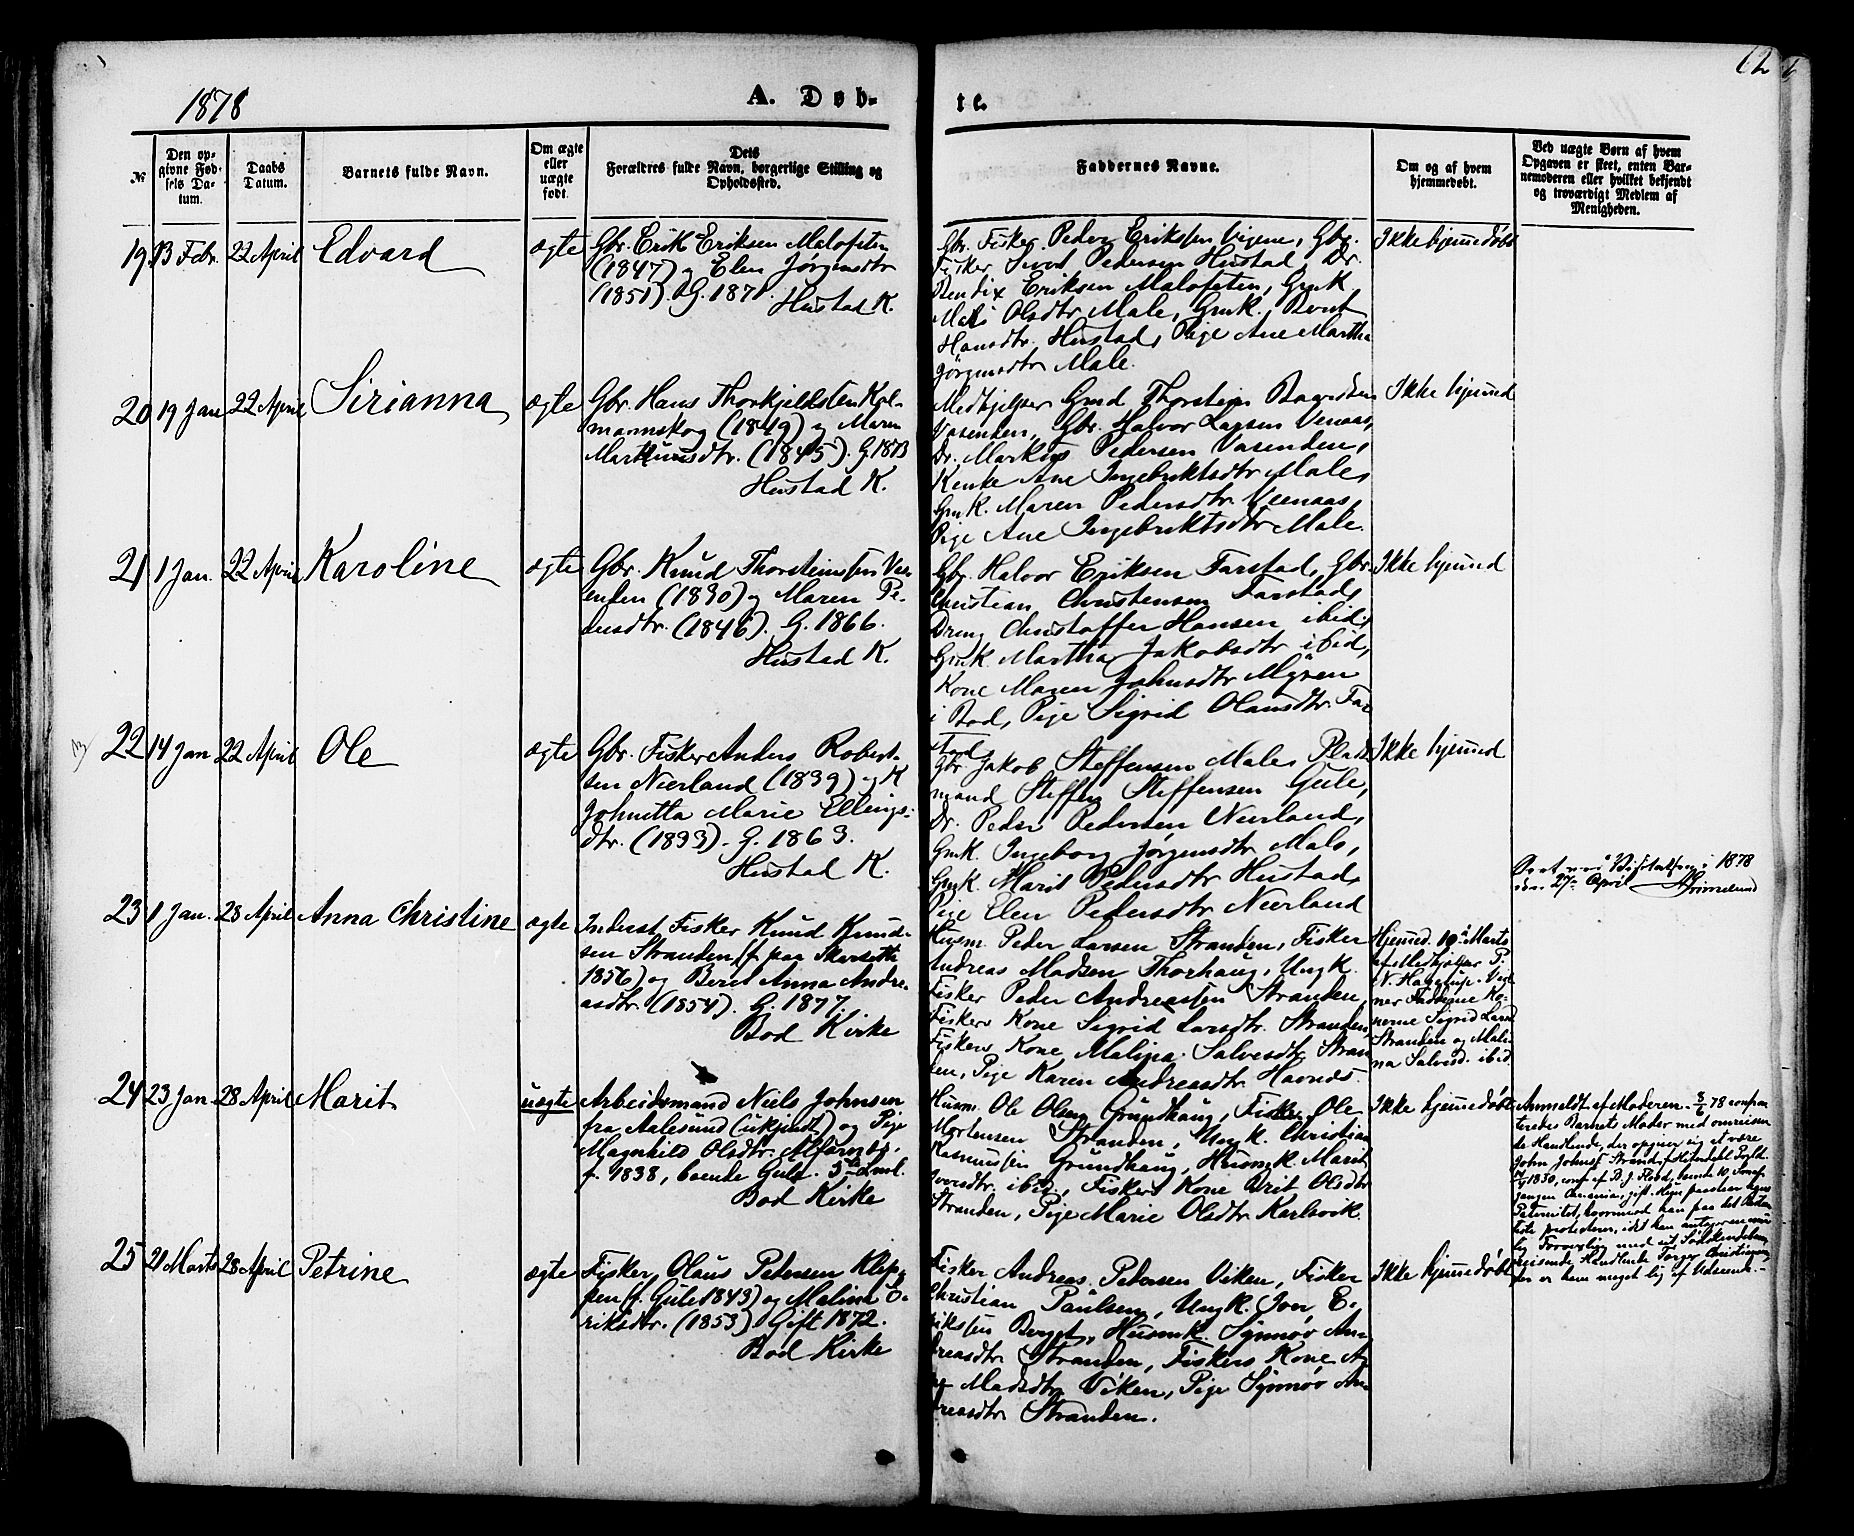 1878
A. Døb-
te.
12
№
Den op-
givne Fød-
sels Da-
tum.
Daabs
Datum.
Barnets fulde Navn.
Om ægte
eller
uægte
født.
Dets
Forældres fulde Navn, borgerlige Stilling og
Opholdssted.
Faddernes Navne.
Om og af hvem
hjemmedøbt.
Ved uægte Børn af hvem
Opgaven er skeet, enten Bar-
nemoderen eller hvilket bekjendt
og troværdigt Medlem af
Menigheden.
19 13 Febr. 22 April Edvard ægte
Gbr. Erik Eriksen Malefeten
(1847) og Elen Jørgensdtr
(1851). G. 1871.
Hustad K.
Gbr. Fisker Peder Eriksen Vigene, Gbr.
Fisker Sivert Pedersen Hustad, Dr.
Bendix Eriksen Malefeten, Gmk.
Olsdtr Male, Gmk. Berit
Hansdtr. Hustad, Pige Ane Martha
Jørgensdtr Male.
Ikke hjemmedøbt
20 19 Jan 22 April Sirianna ægte
Gbr. Hans Thorkjeldsen Kol-
mannskog (1849) og Maren
Marthinusdtr. (1845). G. 1873
Hustad K.
Medhjelper Gmd Thorstein
Vasenden, Gbr. Halvor Larsen Venaas,
Dr. Markus Pedersen Vasenden,
Enke Ane Ingebriktsdtr Male,
Gmk. Maren Pedersdtr. Veenaas,
Pige Ane Ingebriktsdtr Male.
Ikke hjemmd
21 1 Jan. 22 April Karoline ægte
Gbr. Knud Thorsteinsen Vas-
enden (1830) og Maren Pe-
dersdtr. (1846). G. 1866.
Hustad K.
Gbr. Halvor Eriksen Farstad, Gbr.
Christian Christensen Farstad,
Dreng Christoffer Hansen ibid,
Gmk. Martha Jakobsdtr ibid,
Kone Maren Johnsdtr Myren
i Bod, Pige Sigrid Olausdtr. Far-
stad
Ikke hjemmd
22 14 Jan 22 April Ole ægte
Gbr. Fisker Anders Robert-
sen Nerland (1839) og K
Johnetta Marie Ellings-
dtr. (1833). G. 1863.
Hustad K.
Gbr. Jakob Steffensen Male, Plads
mand Steffen Steffensen Gule,
Dr. Peder Pedersen Nerland,
Gmk. Ingeborg Jørgensdtr Male,
Gmk. Marit Pedersdtr Hustad,
Pige Elen Pedersdtr Nerland
Ikke hjemmd
1878
den 27 April
23 1 Jan. 28 April Anna Christine ægte
Inderst Fisker Knud Knud-
sen Stranden (f. paa
1856) og Beret Anna Andre-
asdtr. (1854). G. 1877.
Bod Kirke
Husm. Peder Larsen Stranden, Fisker
Andreas Madsen Thorhaug, Ungk.
Fisker Peder Andreassen Stranden,
Fiskers Kone Sigrid Larsdtr. Stranden
Fiskers Kone Malina Salvesdtr Stran-
den, Pige Karen Andreasdtr. Havnes.
Hjemmd. 10 Marts
af Medhjelper P.
N. Haustrup. Vid-
ner Fadderne Ko-
nerne Sigrid Larsd
Stranden og Mali-
na Salvesd. ibid.
24 23 Jan. 28 April Marit uægte
Arbeidsmand Niels Johnsen
fra Aalesund (ukjendt) og Pige
Magnhild Olsdtr.
f. 1838, boende Gule.
Bod Kirke
Husm. Ole Olsen Grundhaug, Fisker Ole
Mortensen Stranden, Ungk. Christian
Rasmussen Grundhaug, Husmk. Marit
Iversdtr. ibid., Fiskers Kone Brit Olsdtr
Stranden, Pige Marie Olsdtr Karlsvik.
Ikke hjemmedøbt
Anmeldt af Moderen. 78 confron-
teredes Barnets Moder med omreisen-
de Handlende, der opgiver sig at være
John Johns. Strand
1850,
Paternitet, hvorimod han paa det
25 21 Marts 28 April Petrine ægte
Fisker Olaus Pedersen Klip-
pen (f. Gule 1843) og Malina E-
riksdtr. (1853) Gift 1872.
Bod Kirke
Fisker Andreas Pedersen Viken, Fisker
Christian Paulsen, Ungk. Jon E-
riksen Berget, Husmk. Synnøv An-
dreasdtr Stranden, Fiskers Kone
Madsdtr Viken, Pige Synnøv An-
dreasdtr Stranden.
Ikke hjemmedøbt